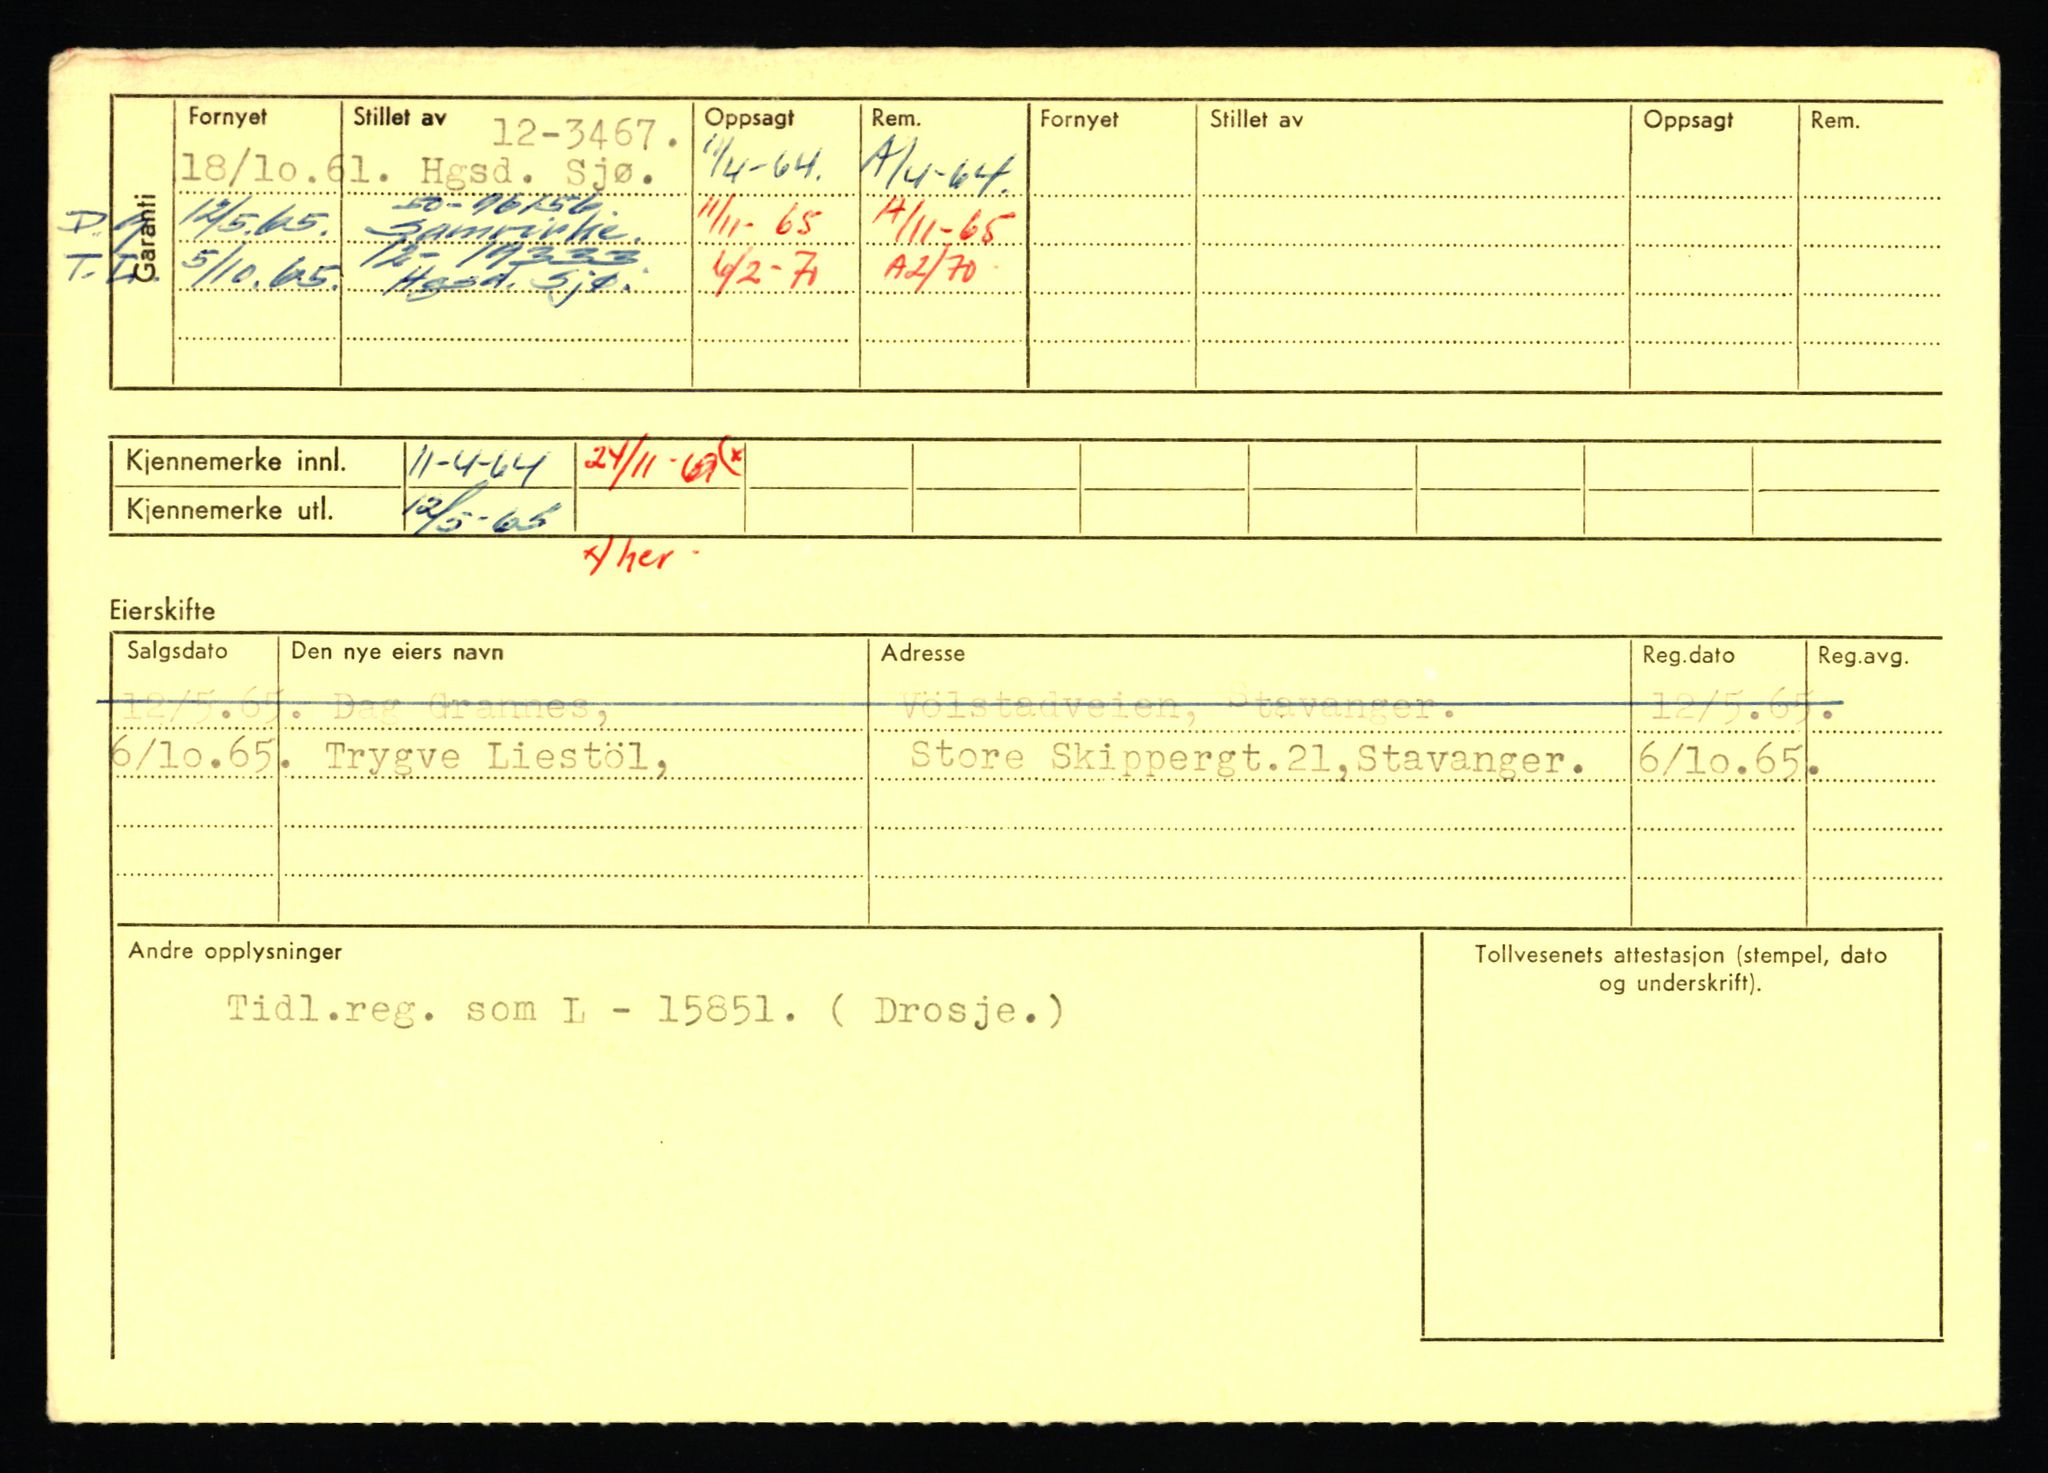 Garanti
Fornyet Stillet av Oppsagt Rem. Fornyet Stillet av Oppsagt Rem.
12-3467.
18/10.61. Hgsd. Sjø. 11/4-64. A/4-64.
50-76156.
D.G. 12/5.65. Samvirke. 11/11-65 A/11-65
12-19333
T.L. 5/10.65. Hgsd. Sjø. 6/2-70 A2/70
Kjennemerke innl. 11-4-64 24/11-69 (x
Kjennemerke utl. 12/5-65
x) her
Eierskifte
Salgsdato Den nye eiers navn Adresse Reg.dato Reg.avg.
12/5.65. Dag Grannes, Völstadveien, Stavanger. 12/5.65.
6/10.65. Trygve Liestöl, Store Skippergt.21,Stavanger. 6/10.65.
Andre opplysninger
Tidl.reg. som L - 15851. ( Drosje.)
Tollvesenets attestasjon (stempel, dato
og underskrift).